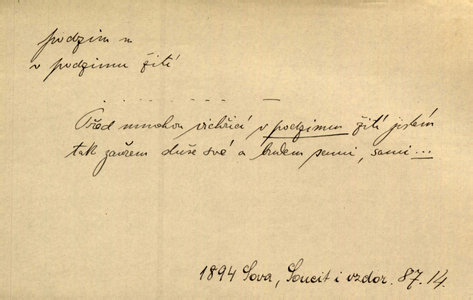 podzim m
v podzimu žití
. . . . . . . . – . – –
Před mnohou vichřicí v podzimu žití jistém
tak zavřem duše své a budem sami, sami...
1894 Sova, Soucit i vzdor. 87.14.